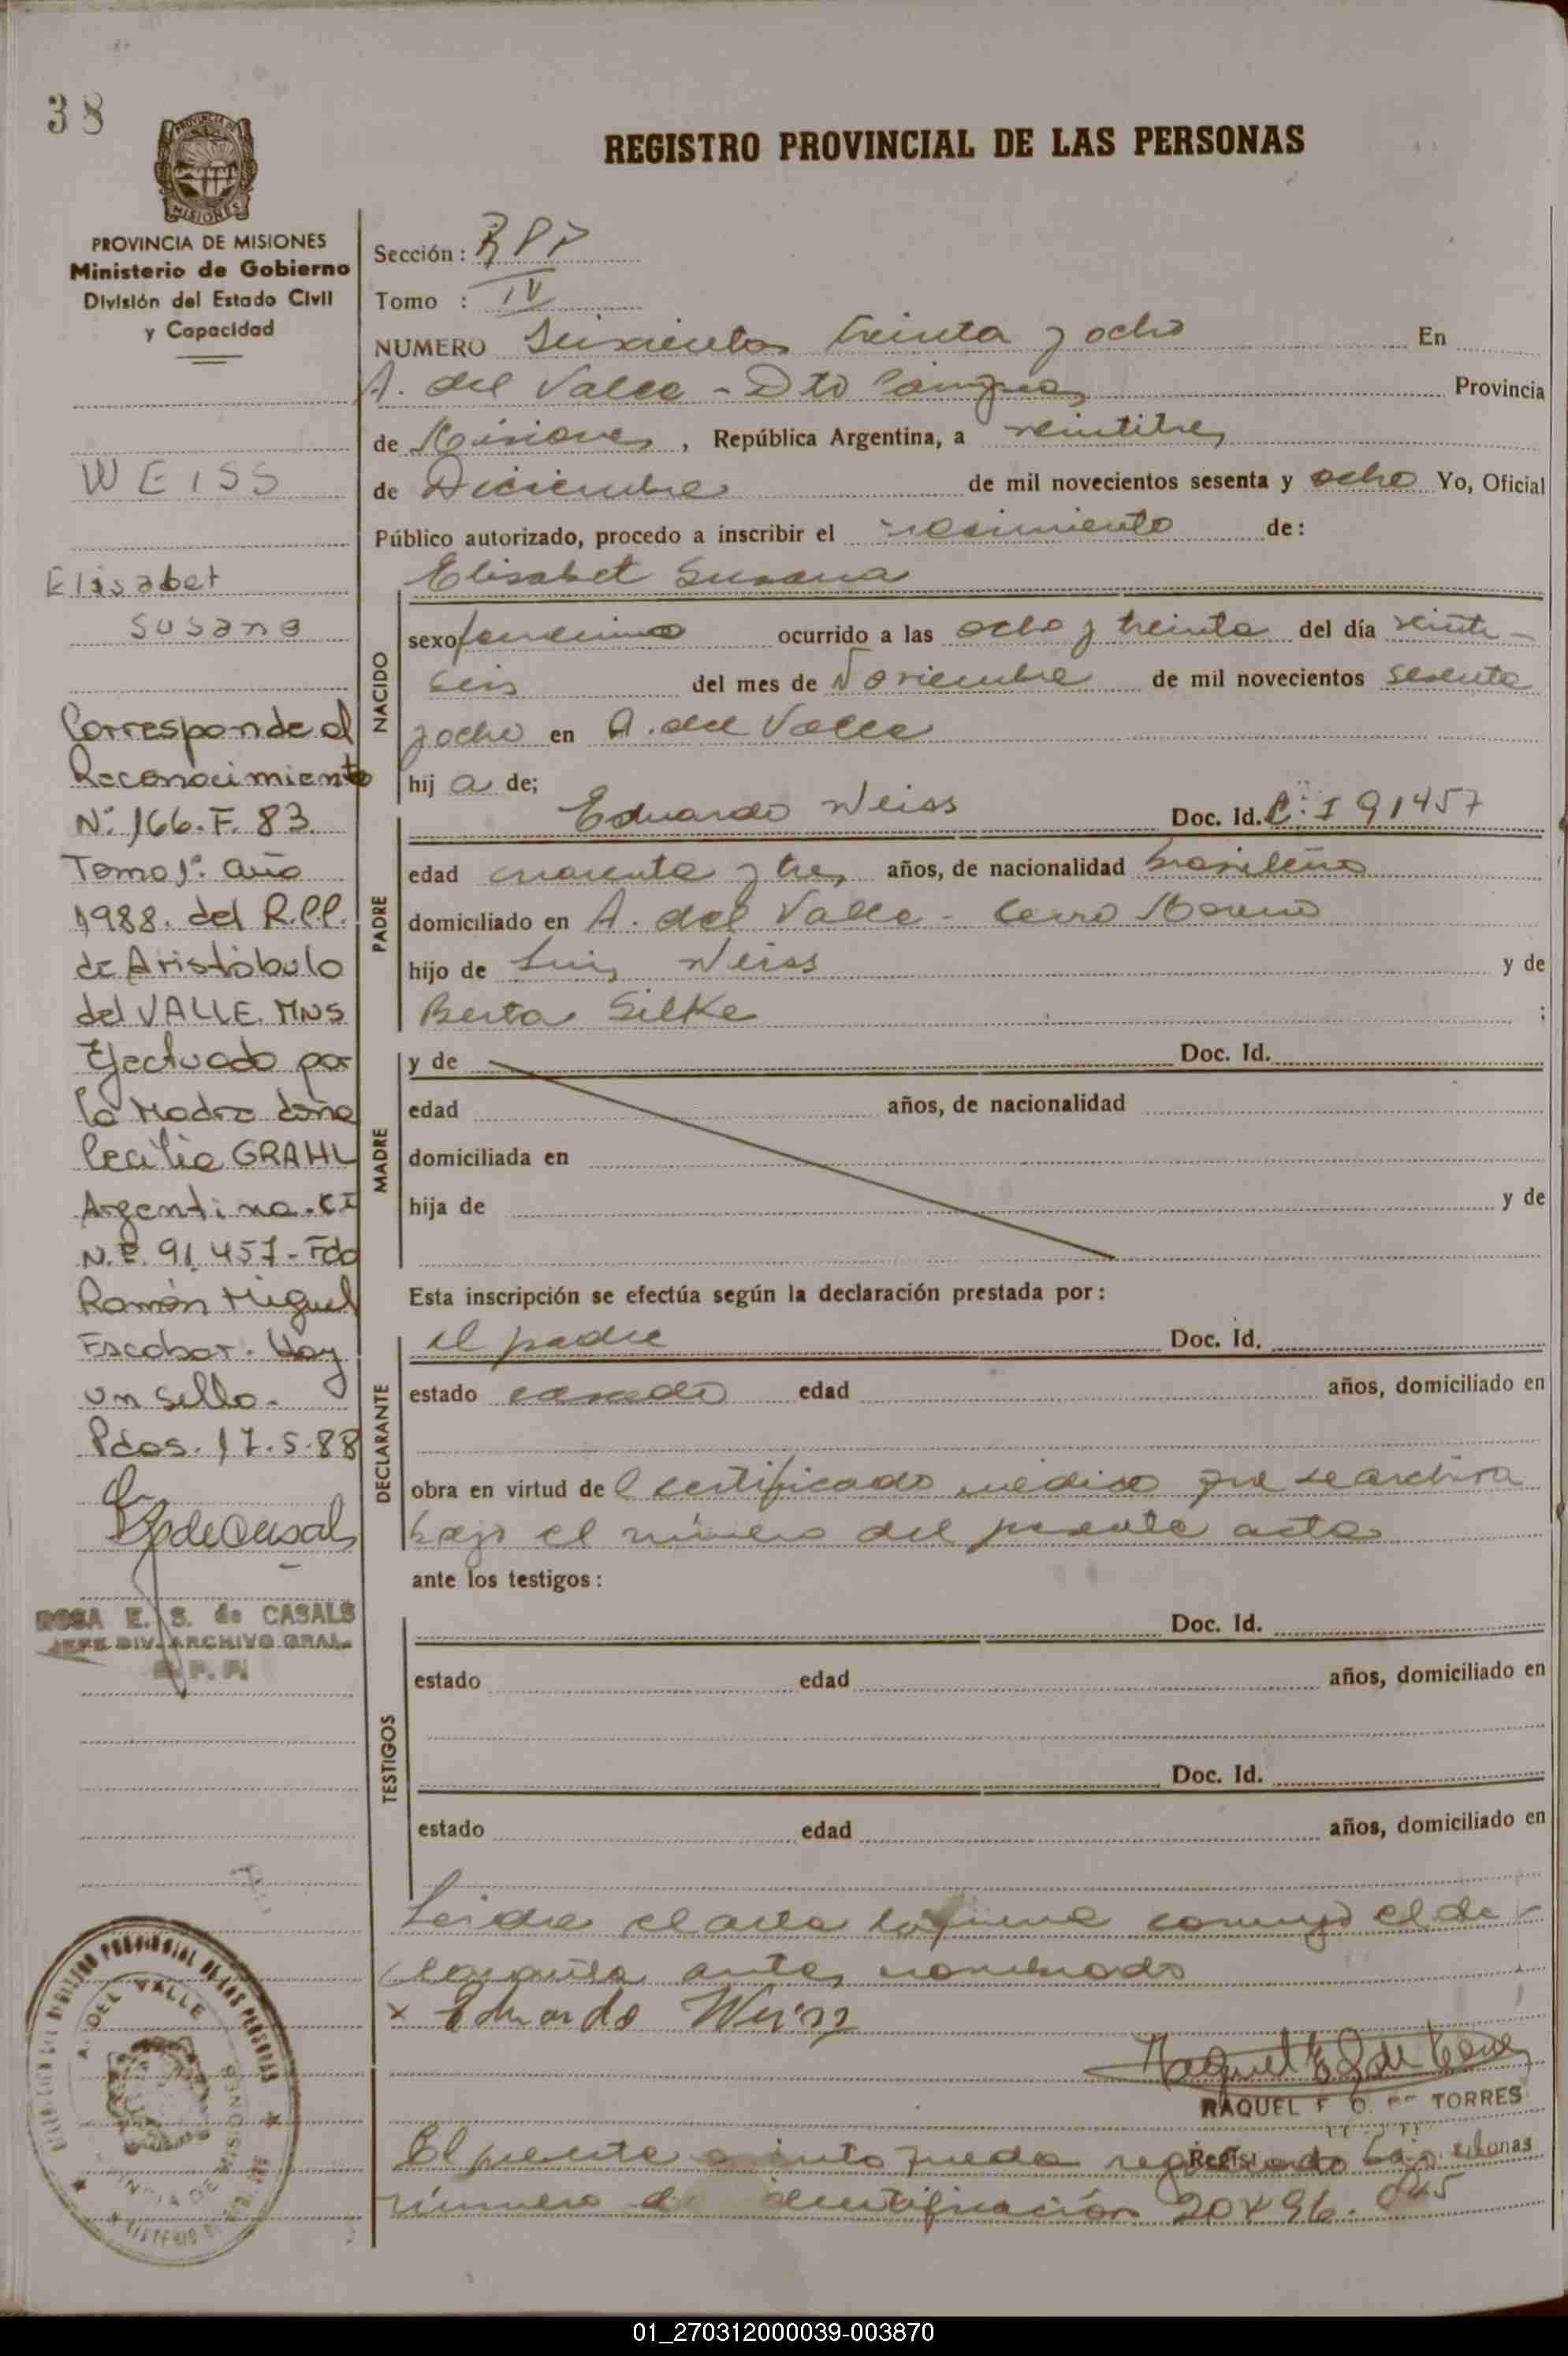 38
REGISTRO PROVINCIAL DE LAS PERSONAS
PROVINCIA DE MISIONES
Ministerio de Gobierno
División del Estado Civil
y Capacidad
WEISS
Elisabet
Susana
Corresponde al
Reconocimiento
Nº 166. F. 83.
Tomo 1º. año
1988. del R.P.P.
de Aristóbulo
del VALLE. MNS
Efectuado por
la Madre doña
Cecilia GRAHL
Argentina. CI
N.º. 91.457 - Fdo
Ramón Miguel
Escobar. Hay
un sello.
Pdas. 17.5.88
ROSA E. S. de CASALS
JEFE DIV. ARCHIVO GRAL.
R. P. P.
Sección: RPP
Tomo : IV
NUMERO Seiscientos treinta y ocho En
A. del Valle - Dto Cainguas Provincia
de Misiones, República Argentina, a veintitres
de Diciembre de mil novecientos sesenta y ocho Yo, Oficial
Público autorizado, procedo a inscribir el nacimiento de:
NACIDO
Elisabet Susana
sexo femenino ocurrido a las ocho y treinta del día veinti-
seis del mes de Noviembre de mil novecientos sesenta
y ocho en A. del Valle
hij a de;
PADRE
Eduardo Weiss Doc. Id. C. I 91457
edad cuarenta y tres años, de nacionalidad brasileño
domiciliado en A. del Valle - Cerro Moreno
hijo de Luis Weiss y de
Berta Silke ;
MADRE
y de Doc. Id.
edad años, de nacionalidad
domiciliada en
hija de y de
Esta inscripción se efectúa según la declaración prestada por:
DECLARANTE
el padre Doc. Id.
estado casado edad años, domiciliado en
obra en virtud del certificado médico que se archiva
bajo el número del presente acta
ante los testigos:
TESTIGOS
Doc. Id.
estado edad años, domiciliado en
Doc. Id.
estado edad años, domiciliado en
Leida el acta la firma conmigo el de
clarante antes nombrado
x Eduardo Weiss
RAQUEL F O. de TORRES
El presente asiento queda registrado bajo
número de identificación 20496.045
A. DEL VALLE
01_270312000039-003870